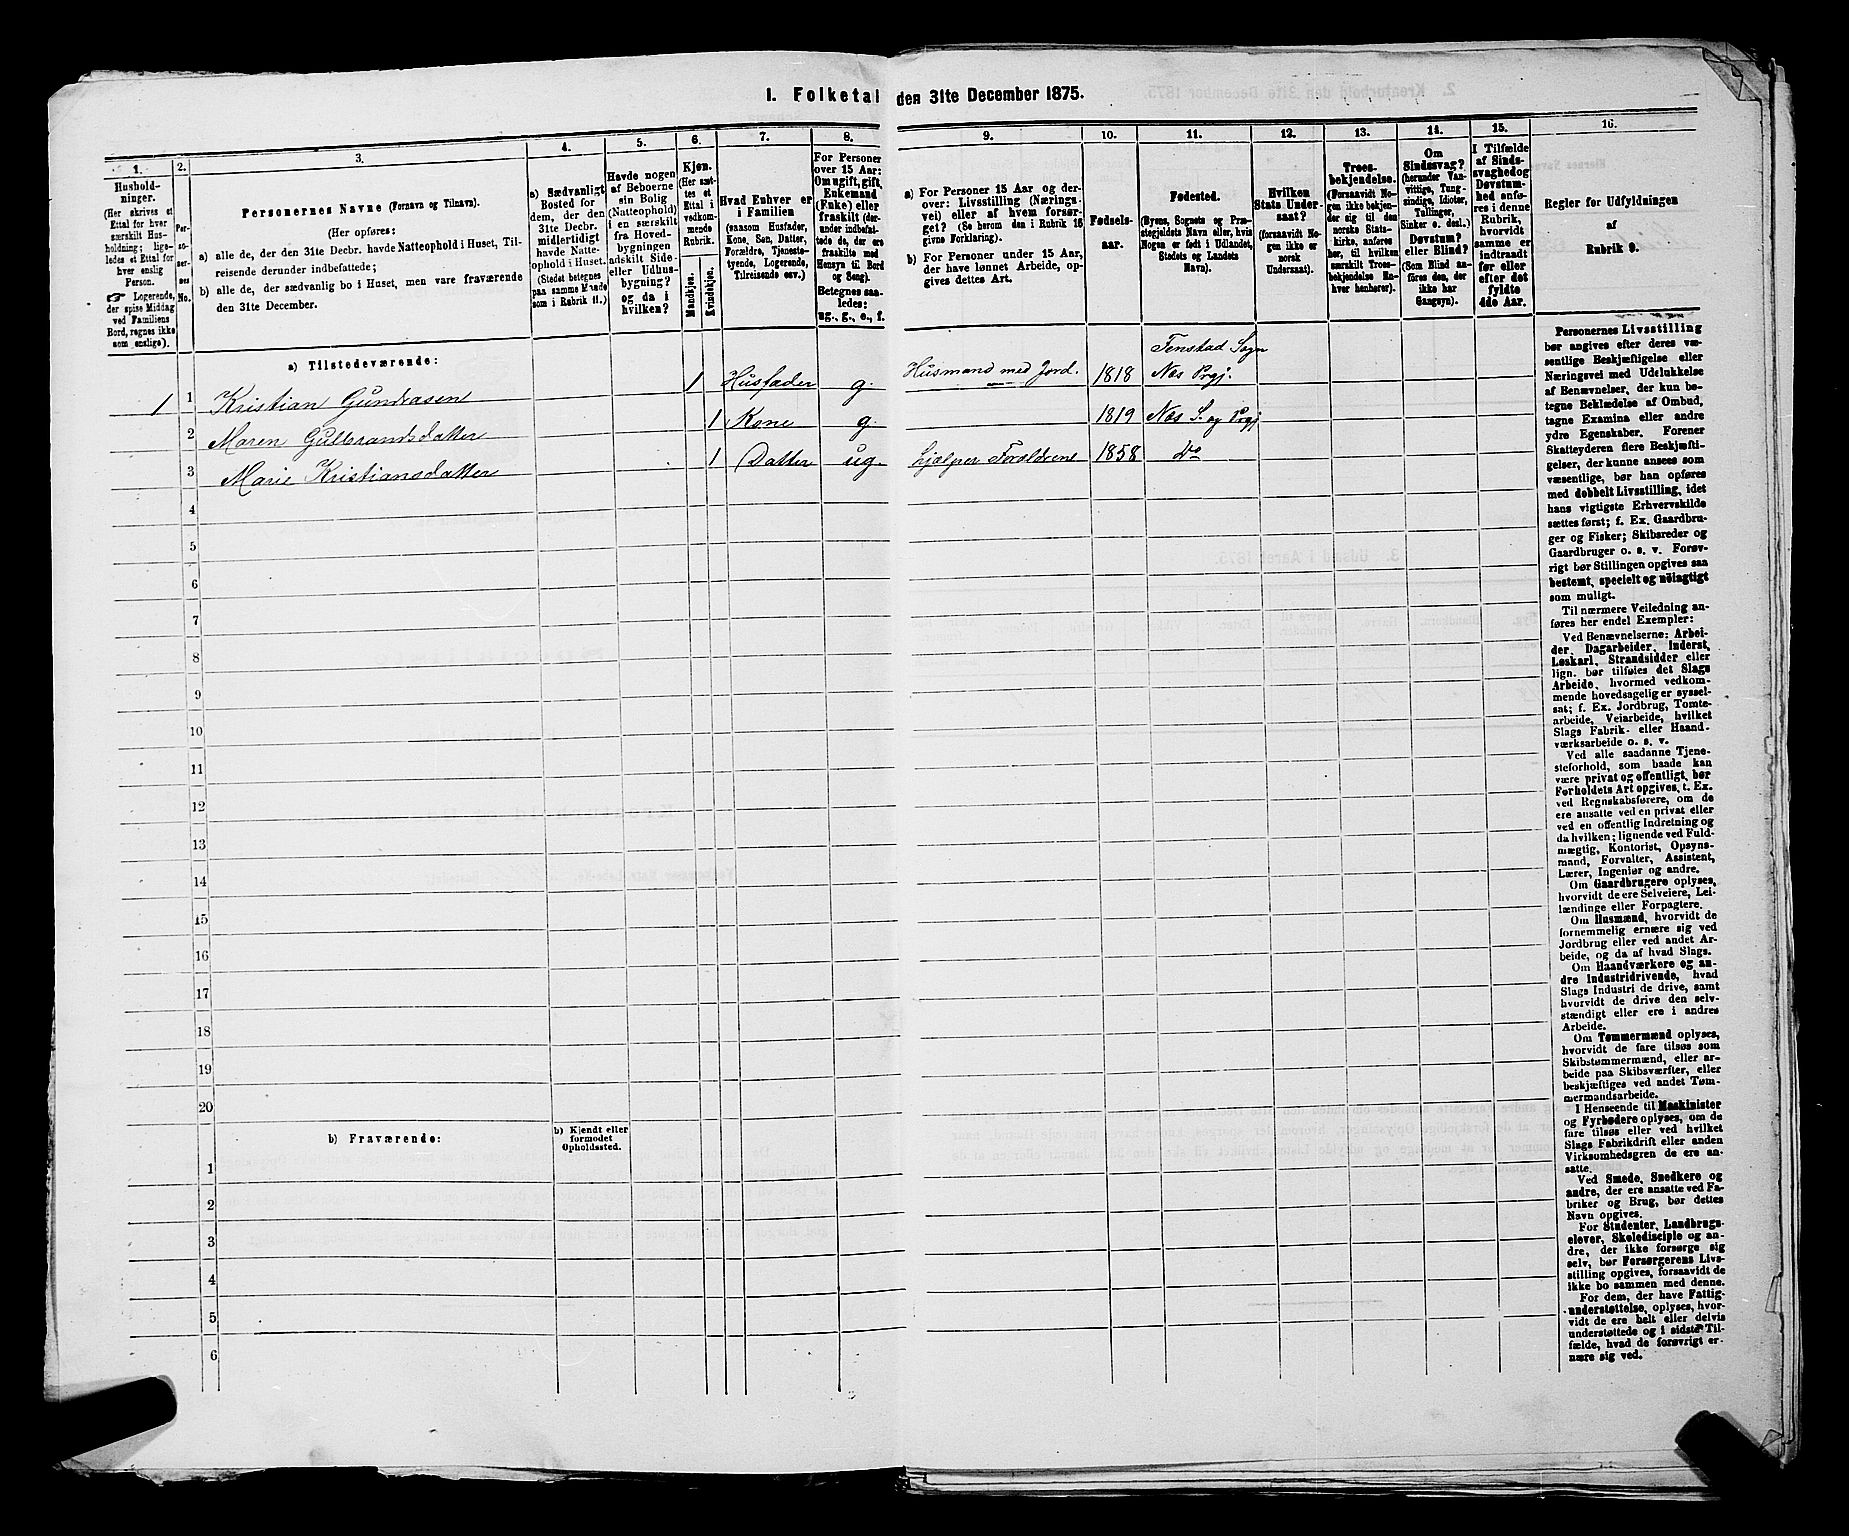 1. Folketal den 31te December 1875.
1.
Hushold-
ninger.
(Her skrives et
Ettal for hver
særskilt Hus-
holdning; lige-
ledes et Ettal for
hver enslig
Person.
☞ Logerende,
der spise Middag
ved Familiens
Bord, regnes ikke
som enslige).
2.
Per-
so-
ner-
nes
No.
3.
Personernes Navne (Fornavn og Tilnavn).
(Her opføres:
a) alle de, der den 31te Decbr. havde Natteophold i Huset, Til-
reisende derunder indbefattede;
b) alle de, der sædvanlig bo i Huset, men vare fraværende
den 31te December.
4.
a) Sædvanligt
Bosted for
dem, der den
31te Decbr.
midlertidigt
havde Natte-
ophold i Huset.
(Stedet betegnes
paa samme Maade
som i Rubrik 11.)
5.
Havde nogen
af Beboerne
sin Bolig
(Natteophold)
i en særskilt
fra Hoved-
bygningen
adskilt Side-
eller Udhus-
bygning?
og da i
hvilken?
6.
Kjøn.
(Her sæt-
tes et
Ettal i
vedkom-
mende
Rubrik.
Mandkjøn.
Kvindekjøn.
7.
Hvad Enhver er
i Familien
(saasom Husfader,
Kone, Søn, Datter,
Forældre, Tjeneste-
tyende, Logerende,
Tilreisende osv.)
8.
For Personer
over 15 Aar:
Om ugift, gift,
Enkemand
(Enke) eller
fraskilt (der-
under indbefat-
tede de, der ere
fraskilte med
Hensyn til Bord
og Seng).
Betegnes saa-
ledes:
ug., g., e., f.
9.
a) For Personer 15 Aar og der-
over: Livsstilling (Nærings-
vei) eller af hvem forsør-
get? (Se herom den i Rubrik 16
givne Forklaring).
b) For Personer under 15 Aar,
der have lønnet Arbeide, op-
gives dettes Art.
10.
Fødsels-
aar.
11.
Fødested.
(Byens, Sognets og Præ-
stegjeldets Navn eller, hvis
Nogen er født i Udlandet,
Stedets og Landets
Navn).
12.
Hvilken
Stats Under-
saat?
(forsaavidt No-
gen ikke er
norsk
Undersaat).
13.
Troes-
bekjendelse.
(Forsaavidt No-
gen ikke bekjen-
der sig til den
norske Stats-
kirke, anføres
her, til hvilken
særskilt Troes-
bekjendelse En-
hver henhører).
14.
Om
Sindssvag?
(herunder Van-
vittige, Tung-
sindige, Idioter,
Tullinger,
Sinker o. desl.)
Døvstum?
eller Blind?
(Som Blind an-
føres den, der
ikke har
Gangsyn).
15.
I Tilfælde
af Sinds-
svaghed og
Døvstum-
hed anfø-
res i denne
Rubrik,
hvorvidt
samme er
indtraadt
før eller
efter det
fyldte
4de Aar.
16.
Regler for Udfyldningen
af
Rubrik 9.
a) Tilstedeværende:
1 1 Kristian Gundrasen 1 Husfader g. Husmand med Jord. 1818 Fenstad Sogn
Næs Prgj.
2 Maren Gulbrandsdatter 1 Kone g. 1819 Næs S. og Prgj
3 Marie Kristiansdatter 1 Datter ug. hjælper Forældrene 1858 do
4
5
6
7
8
9
10
11
12
13
14
15
16
17
18
19
20
b) Fraværende:
b) Kjendt eller
formodet
Opholdssted.
1
2
3
4
5
6
Personernes Livsstilling
bør angives efter deres væ-
sentlige Beskjæftigelse eller
Næringsvei med Udelukkelse
af Benævnelser, der kun be-
tegne Beklædelse af Ombud,
tagne Examina eller andre
ydre Egenskaber. Forener
Skatteyderen flere Beskjæfti-
gelser, der kunne ansees som
væsentlige, bør han opføres
med dobbelt Livsstilling, idet
hans vigtigste Erhvervskilde
sættes først; f. Ex. Gaardbru-
ger og Fisker; Skibsreder og
Gaardbruger o. s. v. Forøv-
rigt bør Stillingen opgives saa
bestemt, specielt og nöiagtigt
som muligt.
Til nærmere Veiledning an-
føres her endel Exempler:
Ved Benævnelserne: Arbei-
der, Dagarbeider, Inderst,
Løskarl, Strandsidder eller
lign. bør tilføies det Slags
Arbeide, hvormed vedkom-
mende hovedsagelig er syssel-
sat; f. Ex. Jordbrug, Tomte-
arbeide, Veiarbeide, hvilket
Slags Fabrik- eller Haand-
værksarbeide o. s. v.
Ved alle saadanne Tjene-
steforhold, som baade kan
være privat og offentligt, bør
Forholdets Art opgives, t. Ex.
ved Regnskabsførere, om de
ere ansatte ved en privat eller
ved en offentlig Indretning og
da hvilken; lignende ved Fuld-
mægtig, Kontorist, Opsyns-
mand, Forvalter, Assistent,
Lærer, Ingeniør og andre.
Om Gaardbrugere oplyses,
hvorvidt de ere Selveiere, Lei-
lændinge eller Forpagtere.
Om Husmænd, hvorvidt de
fornemmelig ernære sig ved
Jordbrug eller ved andet Ar-
beide, og da af hvad Slags.
Om Haandværkere og an-
dre Industridrivende, hvad
Slags Industri de drive, samt
hvorvidt de drive den selv-
stændigt eller ere i andres
Arbeide.
Om Tømmermænd oplyses,
hvorvidt de fare tilsøs som
Skibstømmermænd, eller ar-
beide paa Skibsværfter, eller
beskjæftiges ved andet Tøm-
mermandsarbeide.
I Henseende til Maskinister
og Fyrbødere oplyses, om de
fare tilsøs eller ved hvilket
Slags Fabrikdrift eller anden
Virksomhedsgren de ere an-
satte.
Ved Smede, Snedkere og
andre, der ere ansatte ved Fa-
briker og Brug, bør dettes
Navn opgives.
For Studenter, Landbrugs-
elever, Skoledisciple og an-
dre, der ikke forsørge sig
selv, bør Forsørgerens Livs-
stilling opgives, forsaavidt de
ikke bo sammen med denne.
For dem, der have Fattig-
understøttelse, oplyses, hvor-
vidt de ere helt eller delvis
understøttede og i sidste Til-
fælde, hvad de forøvrigt er-
nære sig ved.